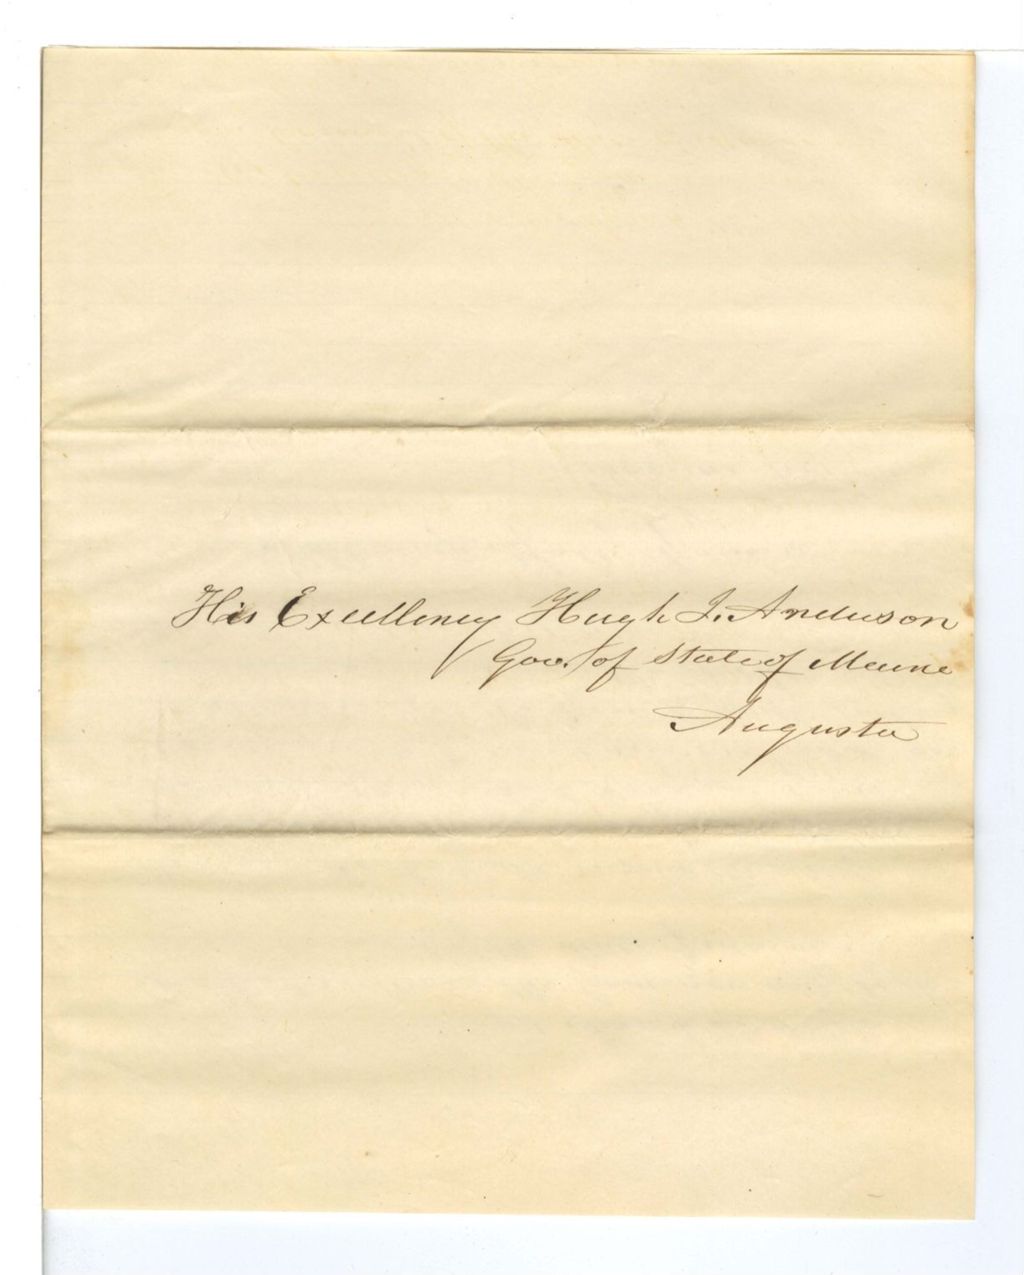 His Excellency Hugh J. Anderson
Gov. of State of Maine
Augusta